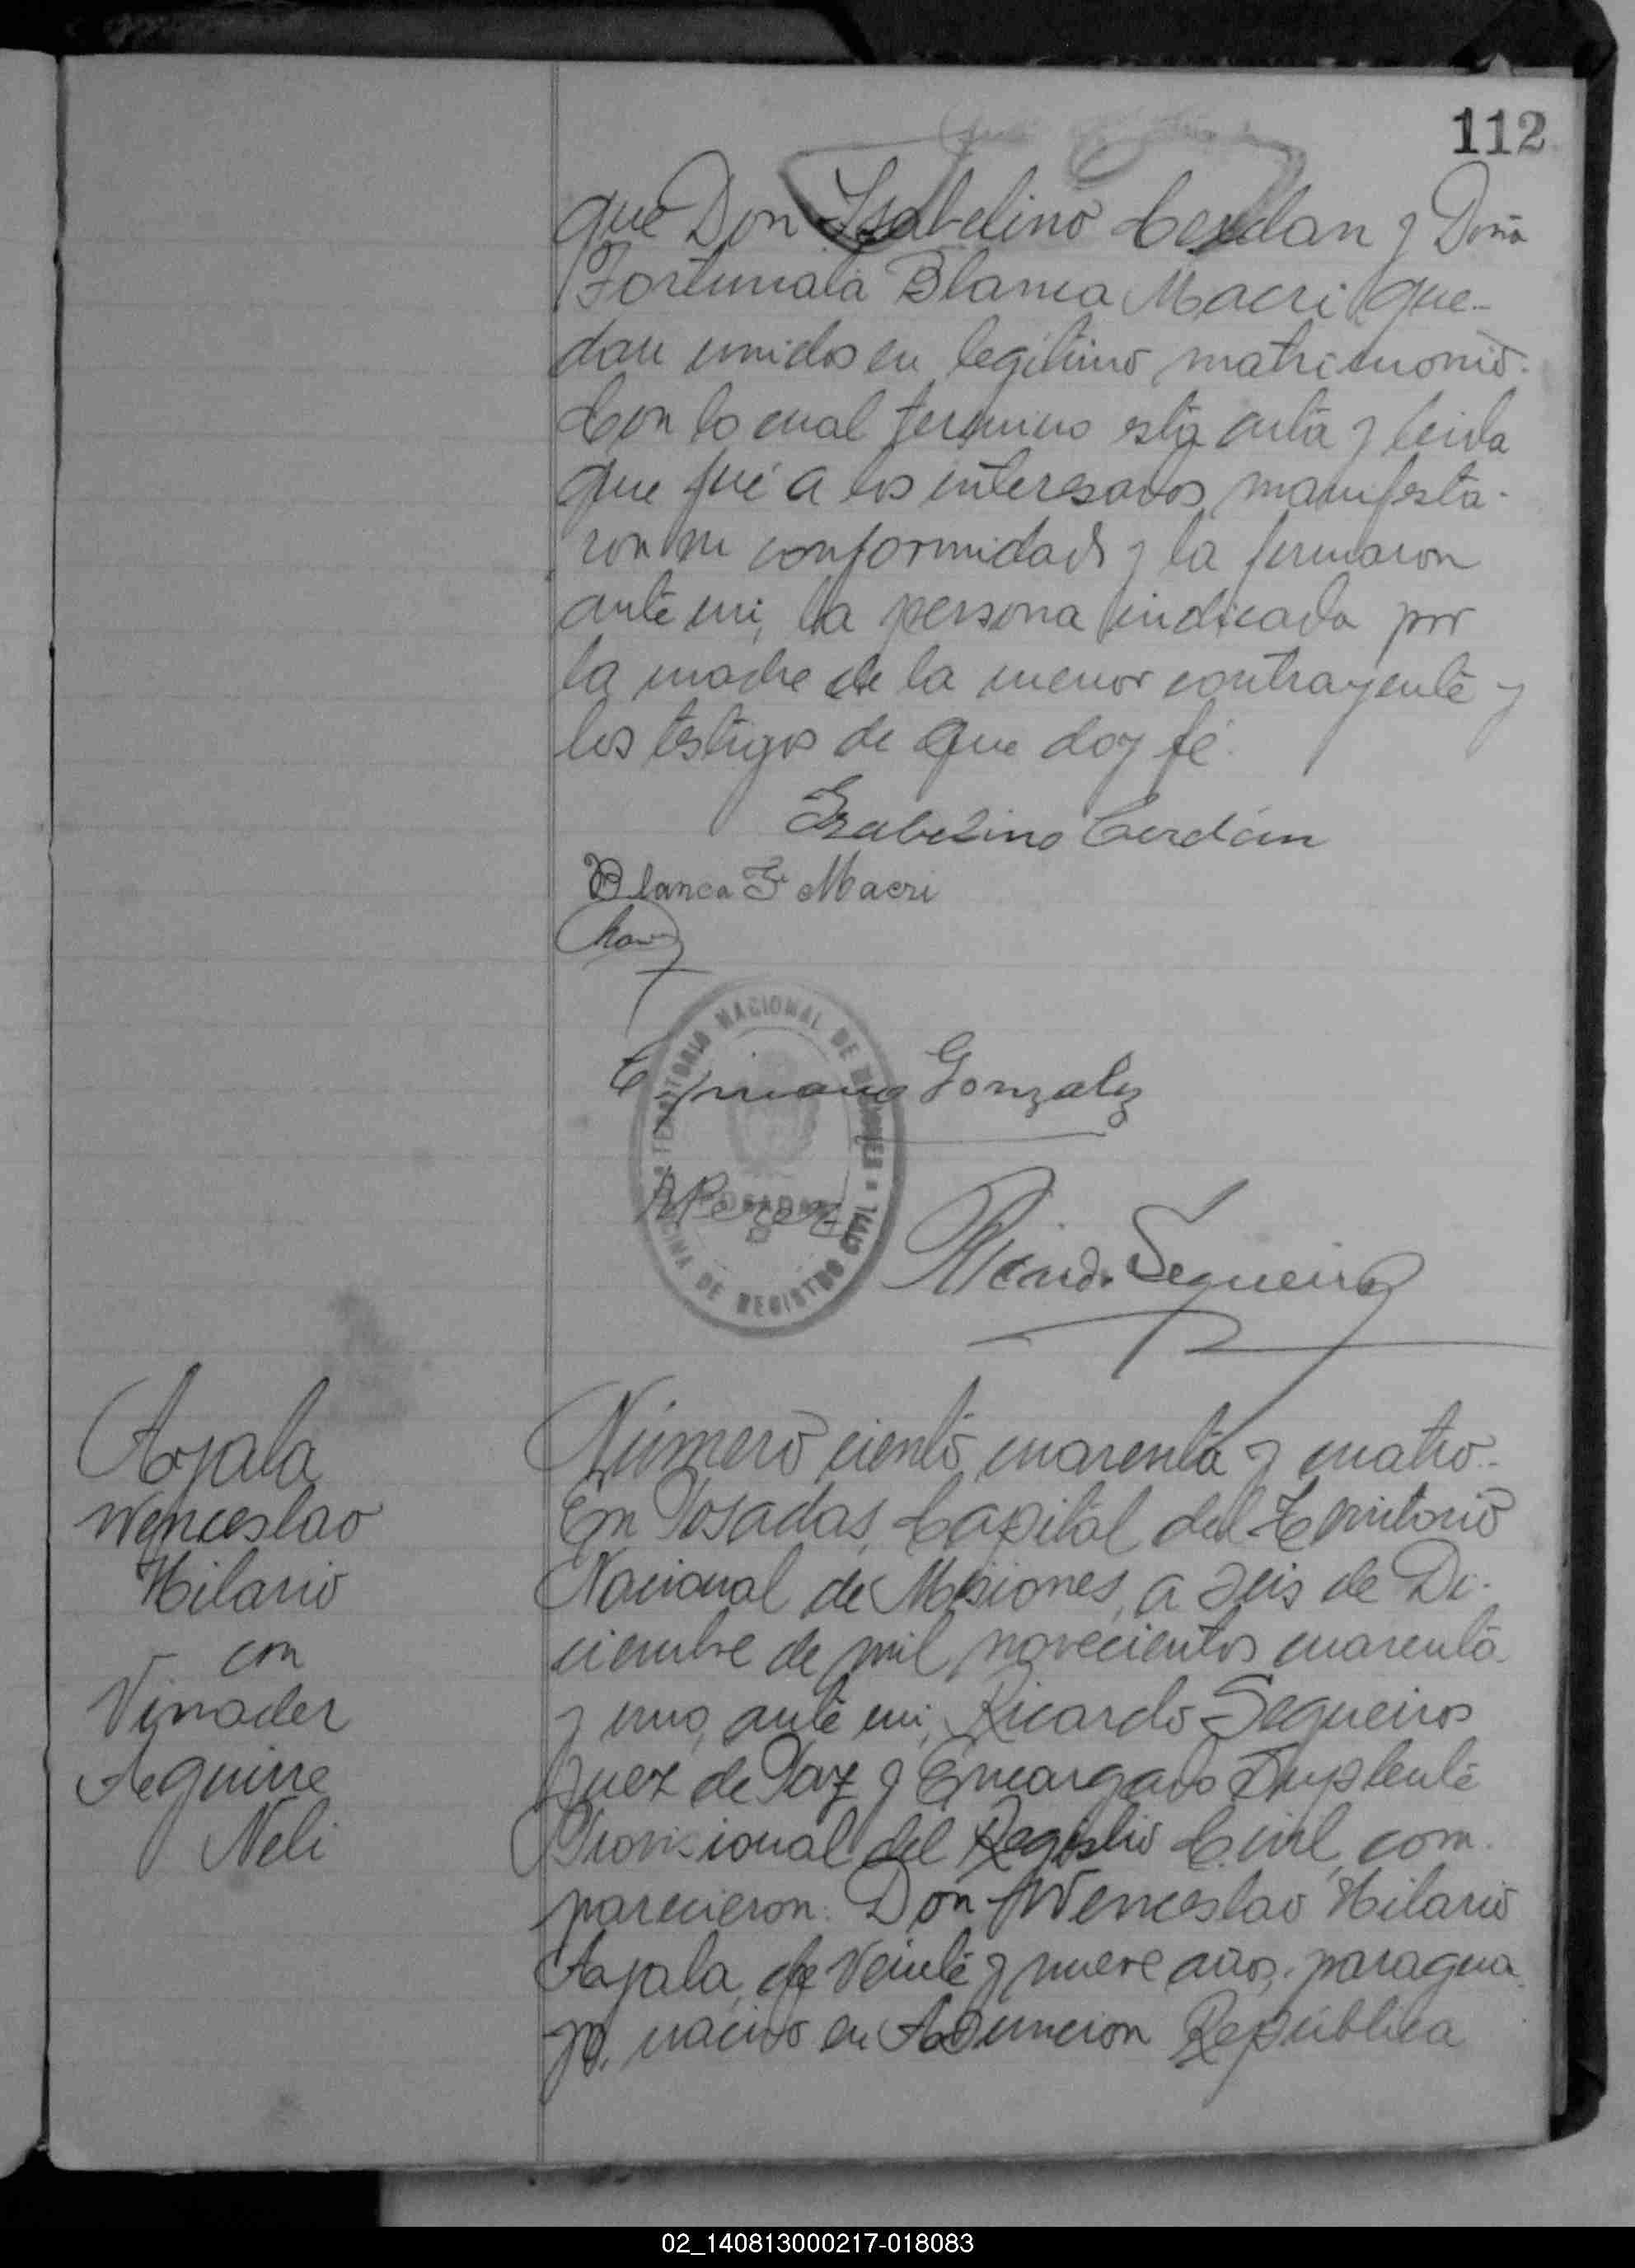 112
que Don Isabelino Cerdan y Doña
Fortunata Blanca Macri que-
dan unidos en legitimo matrimonio.
Con lo cual termino esta acta y leida
que fué a los interesados, manifesta-
ron su conformidad y la firmaron
ante mi, la persona indicada por
la madre de la menor contrayente y
los testigos de que doy fé.
Isabelino Cerdán
Blanca F. Macri
Cipriano Gonzalez
TERRITORIO NACIONAL DE MISIONES
POSADAS
OFICINA DE REGISTRO CIVIL
Ricardo Sequeiros
Ayala
Wenceslao
Hilario
con
Vinader
Aguirre
Neli
Número ciento cuarenta y cuatro.-
En Posadas, Capital del Territorio
Nacional de Misiones, a seis de Di-
ciembre de mil novecientos cuarenta
y uno, ante mi, Ricardo Sequeiros
Juez de Paz y Encargado Suplente
Provisional del Registro Civil, com-
parecieron: Don Wenceslao Hilario
Ayala, de veinte y nueve años, paragua-
yo, nacido en Asuncion República
02_140813000217-018083